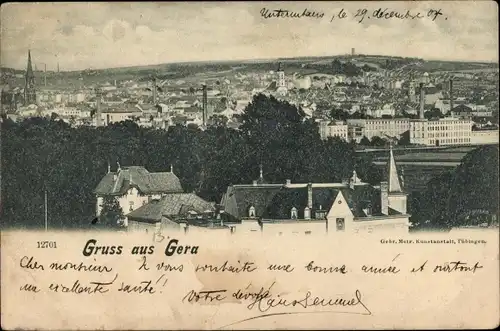 Untermhaus, le 29 décembre 04.
12701
Gruss aus Gera
Gebr. Metz, Kunstanstalt, Tübingen.
Cher monsieur, Je vous souhaite une bonne année et surtout
une excellente santé!
Votre dévoué